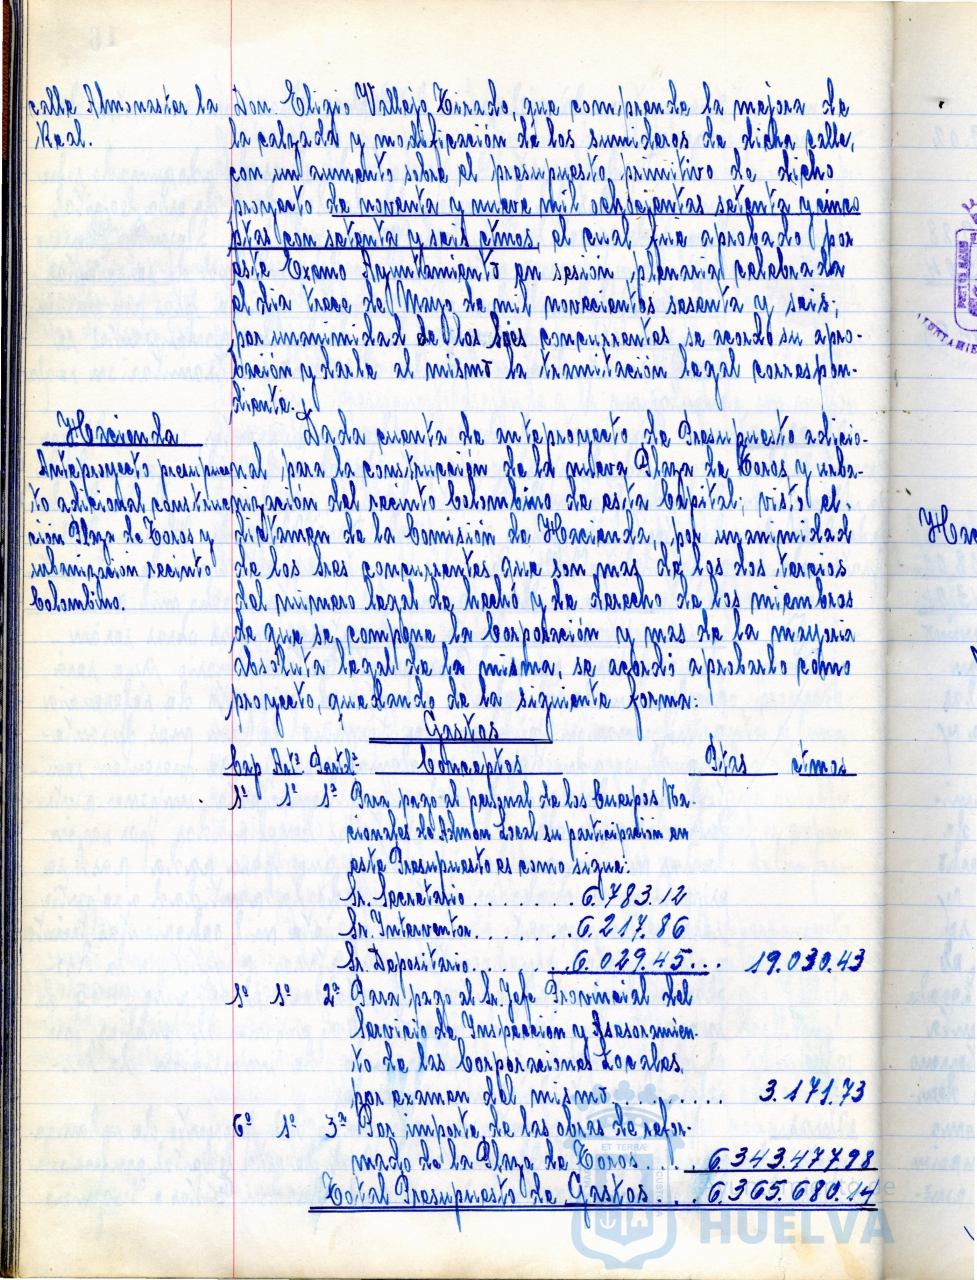 calle Almonaster la
Real.
Don Eligio Vallejo Tirado, que comprende la mejora de
la calzada y modificación de los sumideros de dicha calle,
con un aumento sobre el presupuesto primitivo de dicho
proyecto de noventa y nueve mil ochocientas setenta y cinco
ptas con setenta y seis ctmos, el cual fue aprobado por
este Excmo Ayuntamiento en sesión plenaria celebrada
el dia trece de Mayo de mil novecientos sesenta y seis;
por unanimidad de los Sres concurrentes, se acordo su apro-
bación y darle al mismo la tramitación legal correspon-
diente.
Hacienda
Anteproyecto presupues-
to adicional construc-
ción Plaza de Toros y
urbanización recinto
Colombino.
Dada cuenta de anteproyecto de Presupuesto adicio-
nal para la construcción de la nueva Plaza de Toros y urba-
nización del recinto Colombino de esta Capital; visto el
dictamen de la Comisión de Hacienda, por unanimidad
de los Sres concurrentes que son mas de los dos tercios
del número legal de hecho y de derecho de los miembros
de que se compone la Corporación y mas de la mayoria
absoluta legal de la misma, se acordó aprobarlo como
proyecto, quedando de la siguiente forma:
Gastos
Cap Artº Partdª Conceptos Ptas ctmos
1º 1º 1ª Para pago al personal de los Cuerpos Na-
cionales de Admon Local su participación en
este Presupuesto es como sigue:
Sr. Secretario 6.783.12
Sr. Interventor........ 6.217.86
Sr. Depositario...... 6.029.45... 19.030.43
1º 1º 2ª Para pago al Sr. Jefe Provincial del
Servicio de Inspección y Asesoramien-
to de las Corporaciones Locales,
por examen del mismo ........ 3.171.73
6º 1º 3ª Por importe de las obras de refor-
mado de la Plaza de Toros.... 6.343.477.98
Total Presupuesto de Gastos... 6.365.680.14
ET TERRÆ
Ayuntamiento de
HUELVA